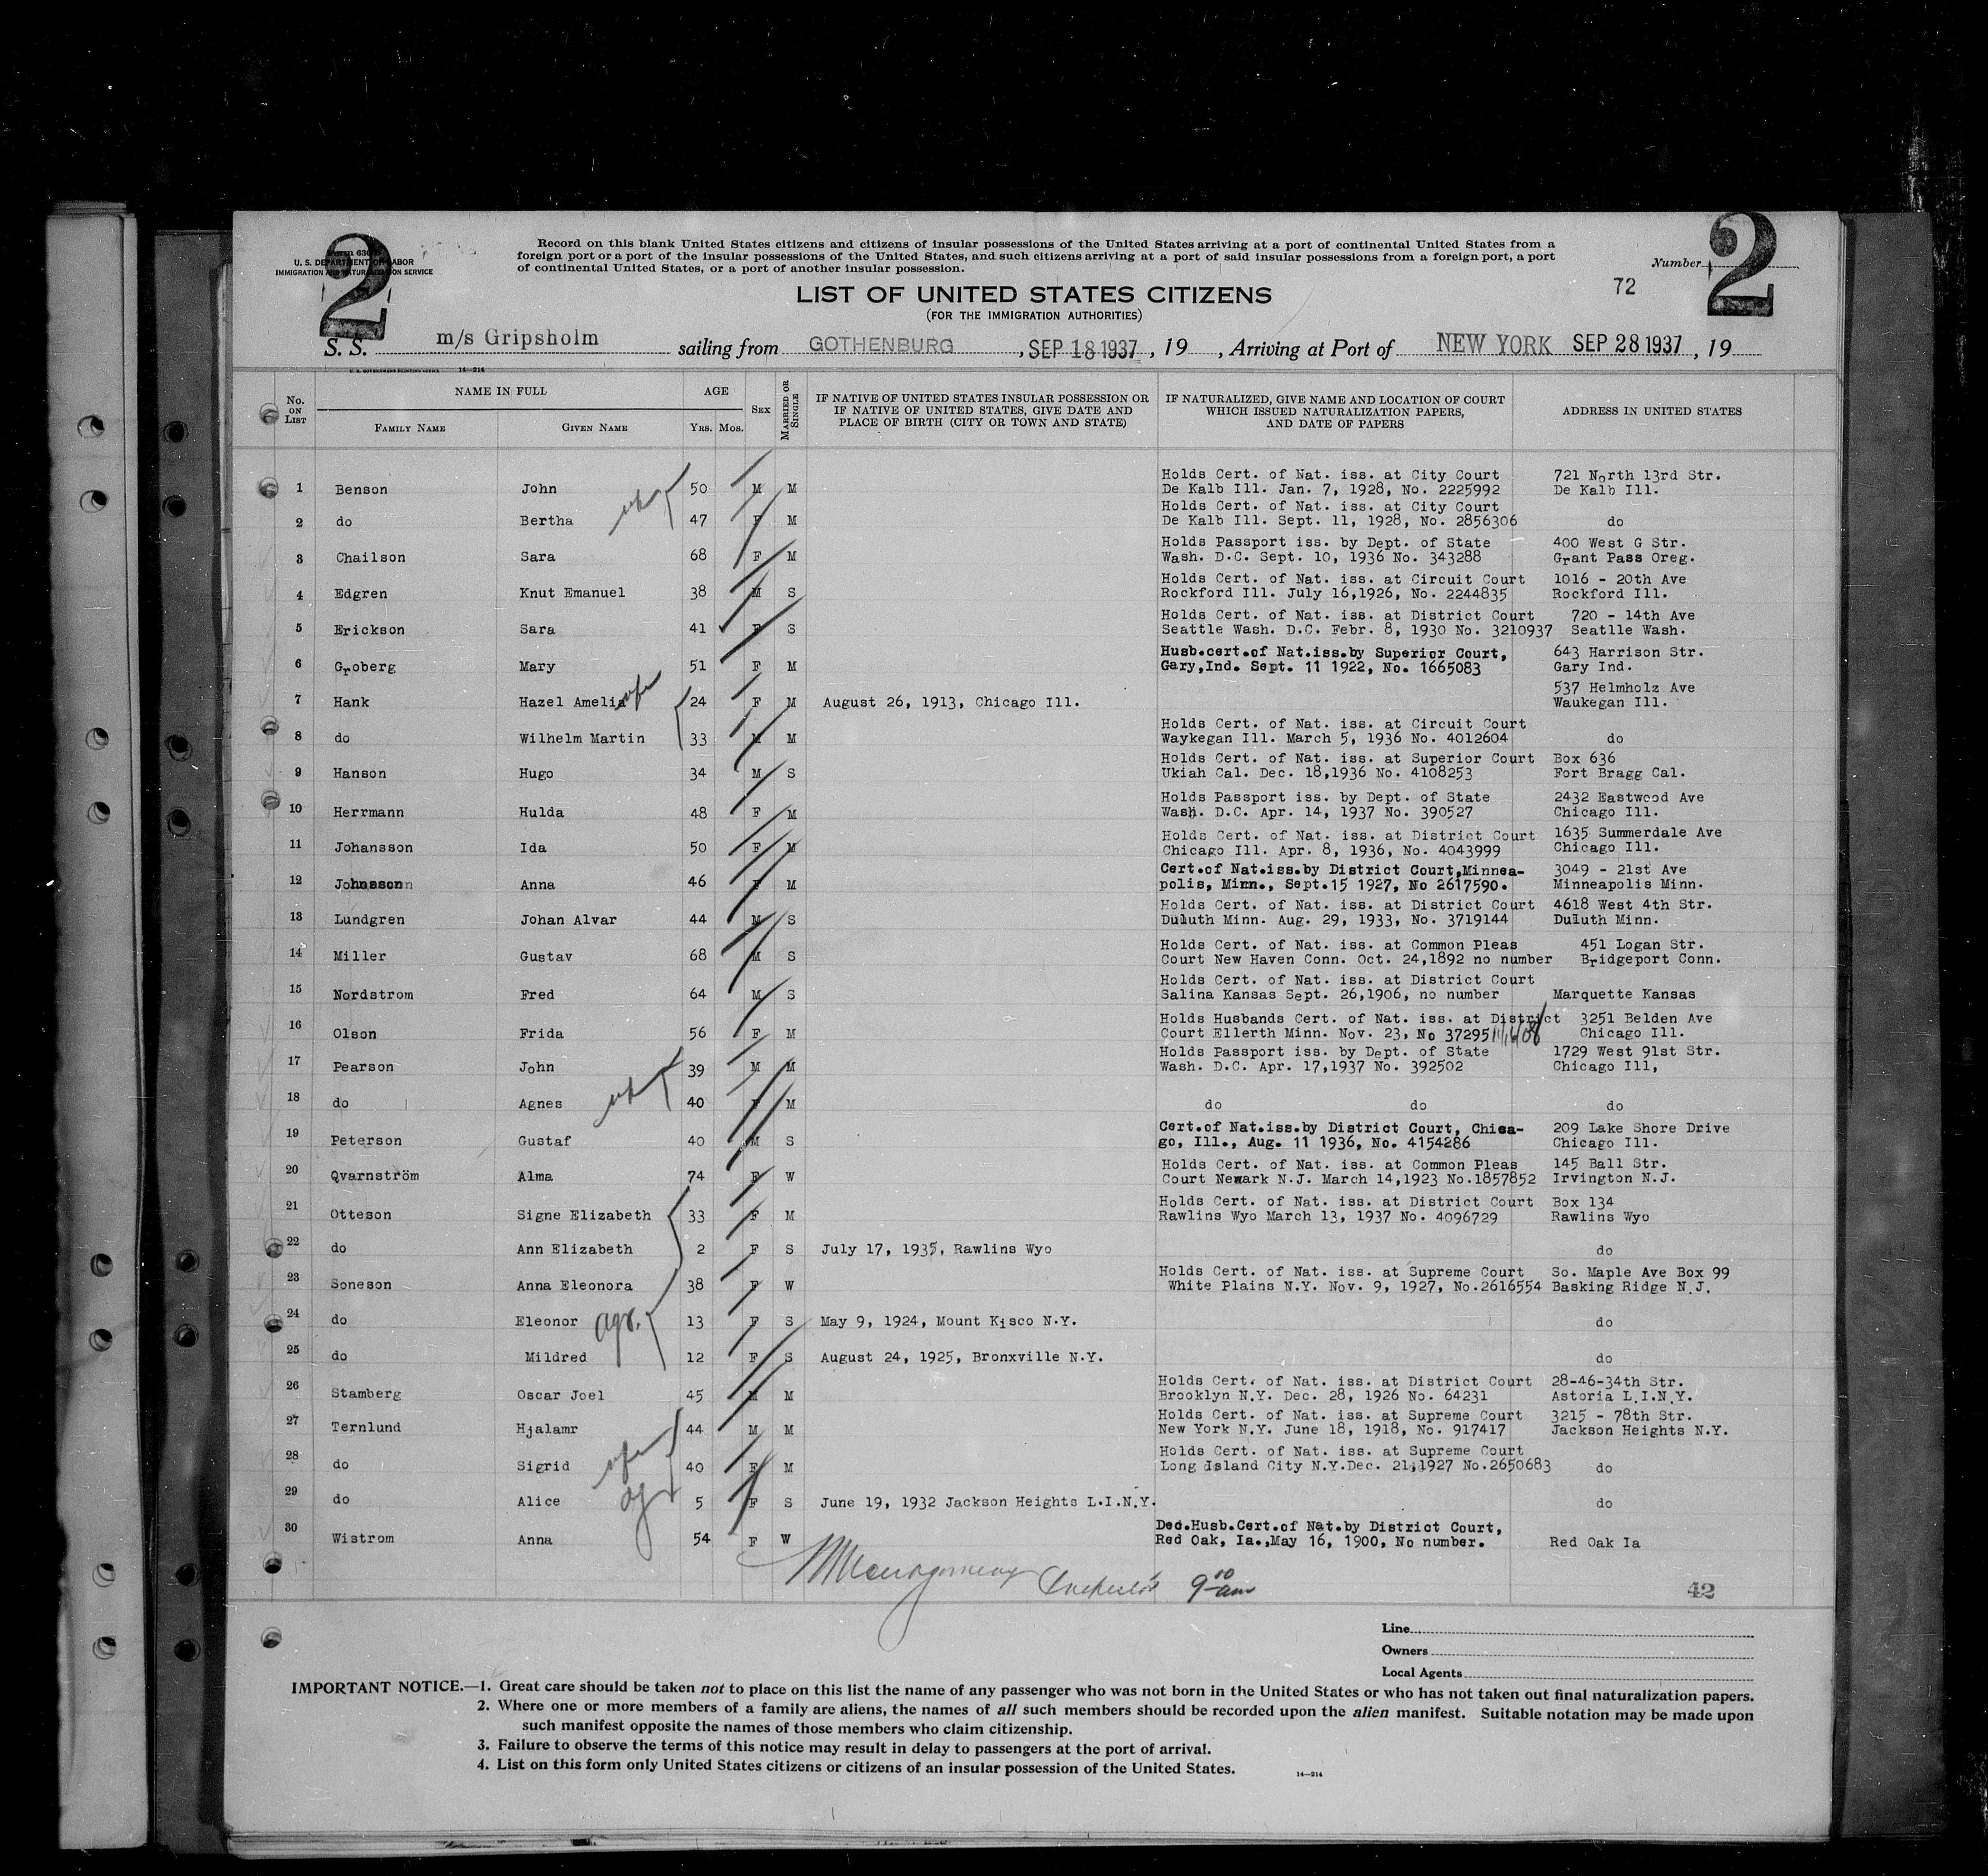 2
2
Form 630
U. S. DEPARTMENT OF LABOR
IMMIGRATION AND NATURALIZATION SERVICE
Record on this blank United States citizens and citizens of insular possessions of the United States arriving at a port of continental United States from a
foreign port or a port of the insular possessions of the United States, and such citizens arriving at a port of said insular possessions from a foreign port, a port
of continental United States, or a port of another insular possession.
Number
72
LIST OF UNITED STATES CITIZENS
(FOR THE IMMIGRATION AUTHORITIES)
S. S. m/s Gripsholm sailing from GOTHENBURG, SEP 18 1937, 19 , Arriving at Port of NEW YORK SEP 28 1937, 19
U. S. GOVERNMENT PRINTING OFFICE 14—214
No. ON LIST NAME IN FULL AGE SEX MARRIED OR SINGLE IF NATIVE OF UNITED STATES INSULAR POSSESSION OR IF NATIVE OF UNITED STATES, GIVE DATE AND PLACE OF BIRTH (CITY OR TOWN AND STATE) IF NATURALIZED, GIVE NAME AND LOCATION OF COURT WHICH ISSUED NATURALIZATION PAPERS, AND DATE OF PAPERS ADDRESS IN UNITED STATES
FAMILY NAME GIVEN NAME YRS. MOS.
Holds Cert. of Nat. iss. at City Court 721 North 13rd Str.
1 Benson John 50 M M De Kalb Ill. Jan. 7, 1928, No. 2225992 De Kalb Ill.
Holds Cert. of Nat. iss. at City Court
2 do Bertha 47 F M De Kalb Ill. Sept. 11, 1928, No. 2856306 do
Holds Passport iss. by Dept. of State 400 West G Str.
3 Chailson Sara 68 F M Wash. D.C. Sept. 10, 1936 No. 343288 Grant Pass Oreg.
Holds Cert. of Nat. iss. at Circuit Court 1016 - 20th Ave
4 Edgren Knut Emanuel 38 M S Rockford Ill. July 16,1926, No. 2244835 Rockford Ill.
Holds Cert. of Nat. iss. at District Court 720 - 14th Ave
5 Erickson Sara 41 F S Seattle Wash. D.C. Febr. 8, 1930 No. 3210937 Seatlle Wash.
Husb.cert.of Nat.iss.by Superior Court, 643 Harrison Str.
6 Groberg Mary 51 F M Gary,Ind. Sept. 11 1922, No. 1665083 Gary Ind.
537 Helmholz Ave
7 Hank Hazel Amelia 24 F M August 26, 1913, Chicago Ill. Waukegan Ill.
Holds Cert. of Nat. iss. at Circuit Court
8 do Wilhelm Martin 33 M M Waykegan Ill. March 5, 1936 No. 4012604 do
Holds Cert. of Nat. iss. at Superior Court Box 636
9 Hanson Hugo 34 M S Ukiah Cal. Dec. 18,1936 No. 4108253 Fort Bragg Cal.
Holds Passport iss. by Dept. of State 2432 Eastwood Ave
10 Herrmann Hulda 48 F M Wash. D.C. Apr. 14, 1937 No. 390527 Chicago Ill.
Holds Cert. of Nat. iss. at District Court 1635 Summerdale Ave
11 Johansson Ida 50 F M Chicago Ill. Apr. 8, 1936, No. 4043999 Chicago Ill.
Cert.of Nat.iss.by District Court,Minnea- 3049 - 21st Ave
12 Anna 46 F M polis, Minn., Sept.15 1927, No 2617590. Minneapolis Minn.
Holds Cert. of Nat. iss. at District Court 4618 West 4th Str.
13 Lundgren Johan Alvar 44 M S Duluth Minn. Aug. 29, 1933, No. 3719144 Duluth Minn.
Holds Cert. of Nat. iss. at Common Pleas 451 Logan Str.
14 Miller Gustav 68 M S Court New Haven Conn. Oct. 24,1892 no number Bridgeport Conn.
Holds Cert. of Nat. iss. at District Court
15 Nordstrom Fred 64 M S Salina Kansas Sept. 26,1906, no number Marquette Kansas
Holds Husbands Cert. of Nat. iss. at District 3251 Belden Ave
16 Olson Frida 56 F M Court Ellerth Minn. Nov. 23, No 37295 Chicago Ill.
Holds Passport iss. by Dept. of State 1729 West 91st Str.
17 Pearson John 39 M M Wash. D.C. Apr. 17,1937 No. 392502 Chicago Ill,
18 do Agnes 40 F M do do do
Cert.of Nat.iss.by District Court, Chica- 209 Lake Shore Drive
19 Peterson Gustaf 40 M S go, Ill., Aug. 11 1936, No. 4154286 Chicago Ill.
Holds Cert. of Nat. iss. at Common Pleas 145 Ball Str.
20 Qvarnström Alma 74 F W Court Newark N.J. March 14,1923 No.1857852 Irvington N.J.
Holds Cert. of Nat. iss. at District Court Box 134
21 Otteson Signe Elizabeth 33 F M Rawlins Wyo March 13, 1937 No. 4096729 Rawlins Wyo
22 do Ann Elizabeth 2 F S July 17, 1935, Rawlins Wyo do
Holds Cert. of Nat. iss. at Supreme Court So. Maple Ave Box 99
23 Soneson Anna Eleonora 38 F W White Plains N.Y. Nov. 9, 1927, No.2616554 Basking Ridge N.J.
24 do Eleonor 13 F S May 9, 1924, Mount Kisco N.Y. do
25 do Mildred 12 F S August 24, 1925, Bronxville N.Y. do
Holds Cert. of Nat. iss. at District Court 28-46-34th Str.
26 Stamberg Oscar Joel 45 M M Brooklyn N.Y. Dec. 28, 1926 No. 64231 Astoria L.I.N.Y.
Holds Cert. of Nat. iss. at Supreme Court 3215 - 78th Str.
27 Ternlund Hjalamr 44 M M New York N.Y. June 18, 1918, No. 917417 Jackson Heights N.Y.
Holds Cert. of Nat. iss. at Supreme Court
28 do Sigrid 40 F M Long Island City N.Y.Dec. 21,1927 No.2650683 do
29 do Alice 5 F S June 19, 1932 Jackson Heights L.I.N.Y. do
Dec.Husb.Cert.of Nat.by District Court,
30 Wistrom Anna 54 F W Red Oak, Ia.,May 16, 1900, No number. Red Oak Ia
Montgomery Inspector 9 10 am
42
Line
Owners
Local Agents
IMPORTANT NOTICE.—1. Great care should be taken not to place on this list the name of any passenger who was not born in the United States or who has not taken out final naturalization papers.
2. Where one or more members of a family are aliens, the names of all such members should be recorded upon the alien manifest. Suitable notation may be made upon
such manifest opposite the names of those members who claim citizenship.
3. Failure to observe the terms of this notice may result in delay to passengers at the port of arrival.
4. List on this form only United States citizens or citizens of an insular possession of the United States.
14—214